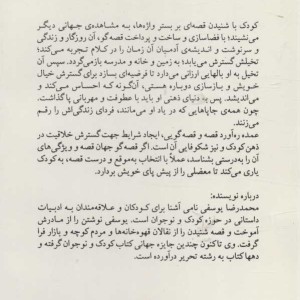 کودک با شنیدن قصه‌ای بر بستر واژه‌ها، به مشاهده‌ی جهانی دیگر
می‌نشیند؛ با فضاسازی و ساخت و پرداخت قصه‌گو، آن روزگار و زندگی
و سرنوشت و اندیشه‌ی آدمیان آن زمان را در کلام تجربه می‌کند؛
تخیلش گسترش می‌یابد؛ به زمین و خانه و مدرسه بازمی‌گردد. سپس آن
تخیل به او بالهایی ارزانی می‌دارد تا قرضیه‌ای بسازد برای گسترش خیال
خویش و بازسازی دوباره هستی، آنگونه که احساس می‌کند و
می‌اندیشد. پس به دنیای ذهنی او باید با عطوفت و مهربانی پاگذاشت.
چون همه‌ی جاپاهایی که در یاد او می‌مانند، فردای زندگی‌اش را رقم
می‌زنند.
عمده ره‌آورد قصه و قصه‌گویی، ایجاد شرایط جهت گسترش خلاقیت در
ذهن کودک و نیز شکوفایی آن است. اگر قصه‌گو جهان قصه و ویژگی‌های
آن را به‌درستی بشناسد، عملاً با انتخاب به‌موقع و درست قصه، به کودک
یاری می‌کند تا معضلی را از پیش پای خویش بردارد.
درباره نویسنده:
محمدرضا یوسفی نامی آشنا برای کودکان و علاقه‌مندان به ادبیات
داستانی در حوزه کودک و نوجوان است. یوسفی نوشتن را از مادرش
آموخت و قصه شنیدن را از نقالان قهوه‌خانه‌ها و مردم کوچه و بازار فرا
گرفت. وی تاکنون چندین جایزه جهانی کتاب کودک و نوجوان گرفته و
دهها کتاب به رشته تحریر درآورده است.